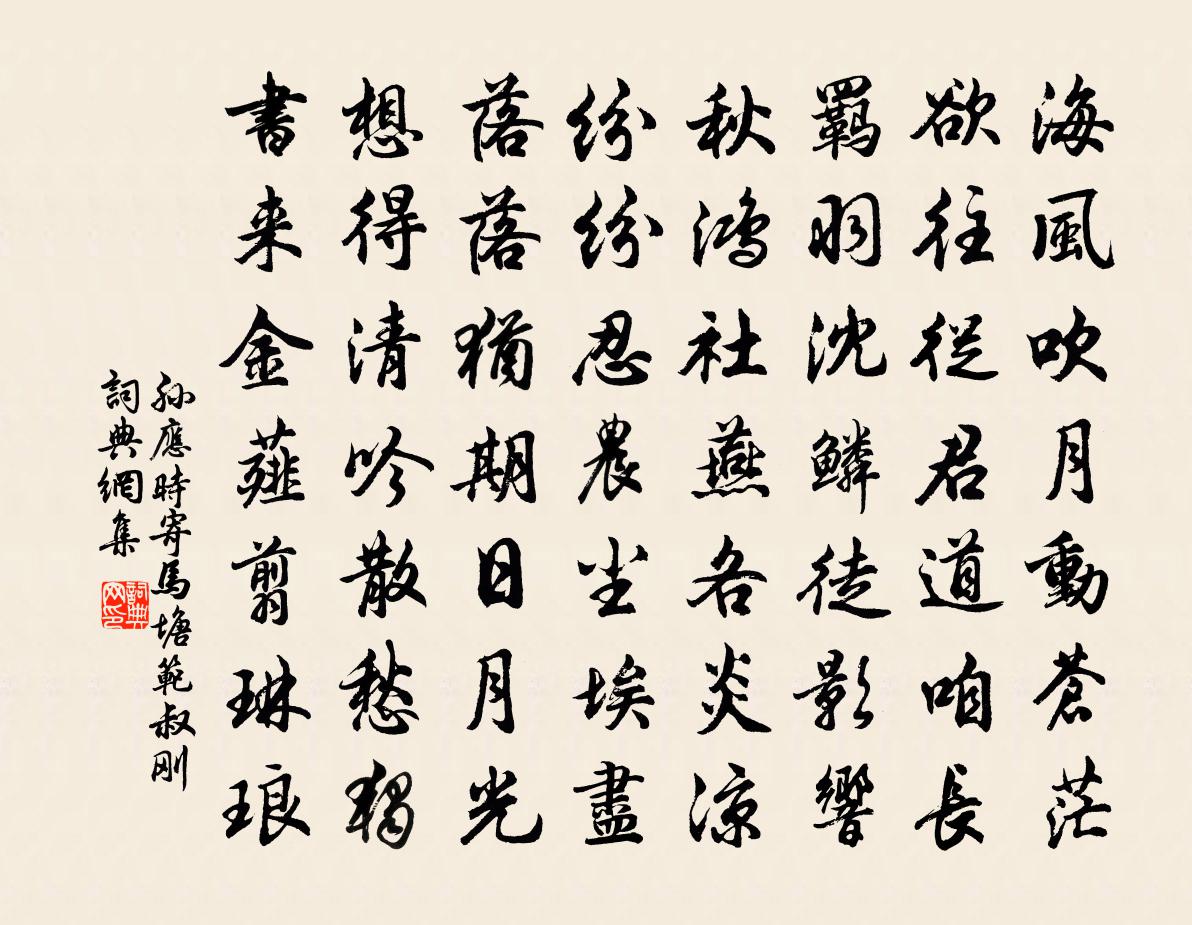 海風吹月動蒼茫
欲往從君道咱長
羁羽沈鱗徒影響
秋鴻社燕各炎涼
紛紛忍農尘埃盡
落落猶期日月光
想得清吟散愁獨
書来金薤剪琳琅
孙應時寄馬塘範叔刚
詞典網集
詞典
网印